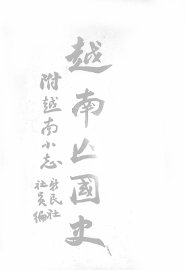 越南亡國史
附越南小志
新民社
社員編